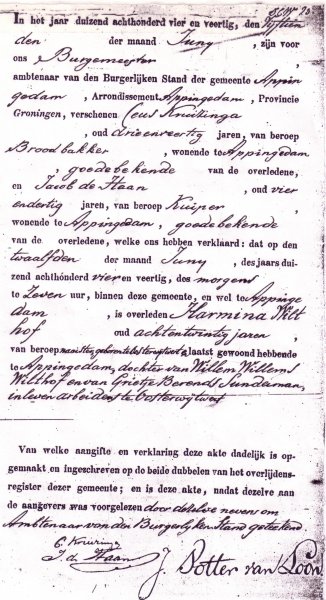 In het jaar duizend achthonderd vier en veertig, den Vijftien
den der maand Juny, zijn voor
ons Burgemeester
ambtenaar van den Burgerlijken Stand der gemeente Appin
gedam, Arrondissement Appingedam, Provincie
Groningen, verschenen Ceus Kruizinga
, oud drieenveertig jaren, van beroep
Broodbakker, wonende te Appingedam
, goede bekende van de overledene,
en Jacob de Haan, oud vier
endertig jaren, van beroep Kuiper
wonende te Appingedam, goede bekende
van de overledene, welke ons hebben verklaard: dat op den
twaalfden der maand Juny, des jaars dui-
zend achthonderd vier en veertig, des morgens
te Zeven uur, binnen deze gemeente, en wel te Appinge
dam, is overleden Harmina Wilt
hof oud achtentwintig jaren,
van beroep naaister, geboren te Oosterwijtwert, laatst gewoond hebbende
te Appingedam, dochter van Willem Willems
Wilthof en van Grietje Berends Sundaman,
in leven arbeiders te Oosterwijtwert
Van welke aangifte en verklaring deze akte dadelijk is op-
gemaakt en ingeschreven op de beide dubbelen van het overlijdens-
register dezer gemeente; en is deze akte, nadat dezelve aan
de aangevers was voorgelezen door dezelve nevens ons
Ambtenaar van den Burgerlyken Stand geteekend.
C Kruizinga
J. de Haan
J. Potter van Loon